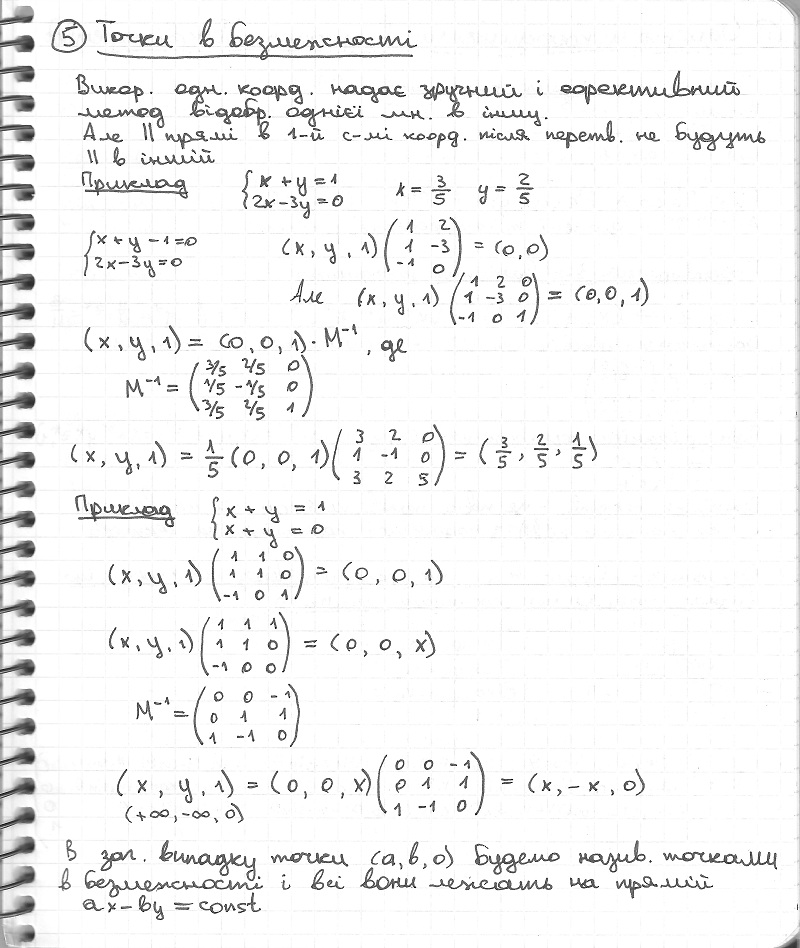 ⑤ Точки в безмежності
Викор. одн. коорд. надає зручний і ефективний
метод відобр. однієї мн. в іншу.
Але || прямі в 1-й с-мі коорд. після перетв. не будуть
|| в іншій
Приклад { x + y = 1 2x - 3y = 0 x = 3/5 y = 2/5
{ x + y - 1 = 0 2x - 3y = 0 (x, y, 1) (1 2; 1 -3; -1 0) = (0, 0)
Але (x, y, 1) (1 2 0; 1 -3 0; -1 0 1) = (0, 0, 1)
(x, y, 1) = (0, 0, 1) · M⁻¹, де
M⁻¹ = (3/5 2/5 0; 1/5 -1/5 0; 3/5 2/5 1)
(x, y, 1) = 1/5 (0, 0, 1) (3 2 0; 1 -1 0; 3 2 5) = (3/5, 2/5, 1/5)
Приклад { x + y = 1 x + y = 0
(x, y, 1) (1 1 0; 1 1 0; -1 0 1) = (0, 0, 1)
(x, y, 1) (1 1 1; 1 1 0; -1 0 0) = (0, 0, x)
M⁻¹ = (0 0 -1; 0 1 1; 1 -1 0)
(x, y, 1) = (0, 0, x) (0 0 -1; 0 1 1; 1 -1 0) = (x, -x, 0)
(+∞, -∞, 0)
В заг. випадку точки (a, b, 0) будемо назив. точками
в безмежності і всі вони лежать на прямій
ax - by = const